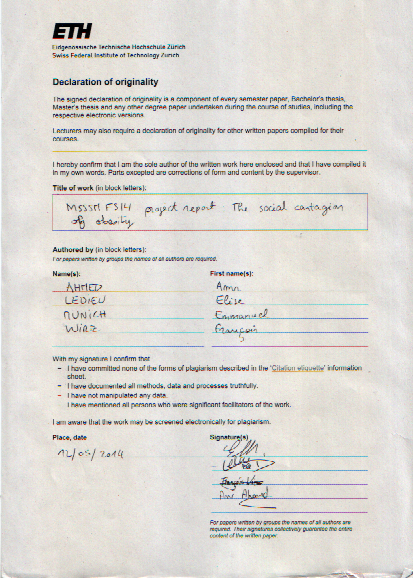 ETH
Eidgenössische Technische Hochschule Zürich
Swiss Federal Institute of Technology Zurich
Declaration of originality
The signed declaration of originality is a component of every semester paper, Bachelor's thesis,
Master's thesis and any other degree paper undertaken during the course of studies, including the
respective electronic versions.
Lecturers may also require a declaration of originality for other written papers compiled for their
courses.
I hereby confirm that I am the sole author of the written work here enclosed and that I have compiled it
in my own words. Parts excepted are corrections of form and content by the supervisor.
Title of work (in block letters):
MSSSM FS14 project report The social contagion
of obesity
Authored by (in block letters):
For papers written by groups the names of all authors are required.
Name(s): First name(s):
AHMED Amr
LEDIEU Elise
MUNICH Emmanuel
WIRZ François
With my signature I confirm that
– I have committed none of the forms of plagiarism described in the 'Citation etiquette' information
sheet.
– I have documented all methods, data and processes truthfully.
– I have not manipulated any data.
I have mentioned all persons who were significant facilitators of the work.
I am aware that the work may be screened electronically for plagiarism.
Place, date Signature(s)
12/05/2014
Amr Ahmed
For papers written by groups the names of all authors are
required. Their signatures collectively guarantee the entire
content of the written paper.